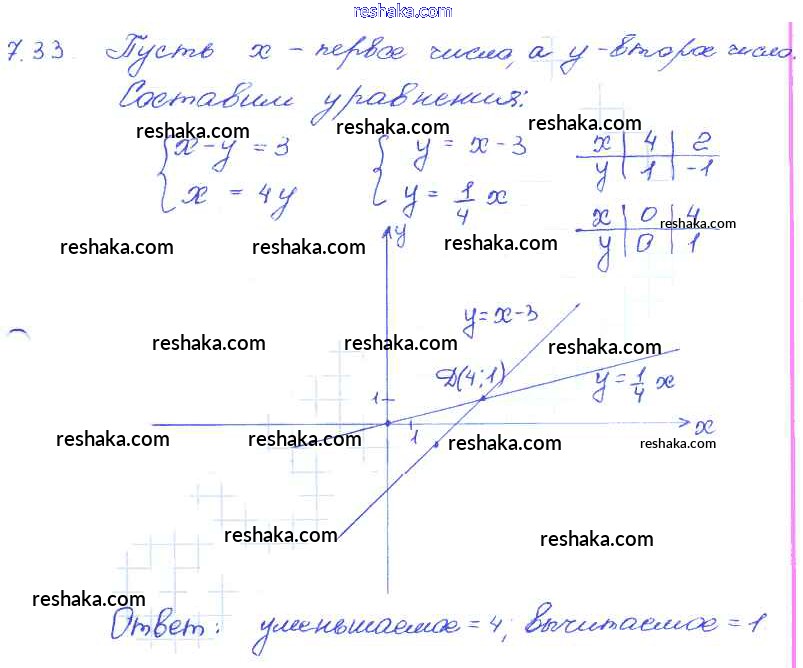 reshaka.com
7.33. Пусть x - первое число, а y - второе число.
Составим уравнения:
reshaka.com reshaka.com reshaka.com
{ x - y = 3 { y = x - 3 x | 4 | 2
x = 4y y = 1/4 x y | 1 | -1
x | 0 | 4
y | 0 | 1
reshaka.com
reshaka.com reshaka.com reshaka.com reshaka.com
y
y = x - 3
reshaka.com reshaka.com reshaka.com
Д(4; 1)
y = 1/4 x
1
x
1
reshaka.com reshaka.com reshaka.com reshaka.com
reshaka.com reshaka.com
reshaka.com
Ответ: уменьшаемое = 4; вычитаемое = 1